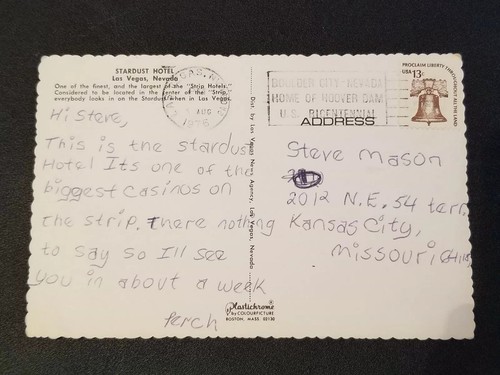 STARDUST HOTEL
Las Vegas, Nevada
One of the finest, and the largest of the "Strip Hotels."
Considered to be located in the center of the "Strip,"
everybody looks in on the Stardust when in Las Vegas.
Hi Steve,
This is the stardust
Hotel Its one of the
biggest casinos on
the strip. There nothing
to say so I'll see
you in about a week
Perch
Dist. by Las Vegas News Agency, Las Vegas, Nevada
Plastichrome
by COLOURPICTURE
BOSTON, MASS. 02130
AUG
1976
BOULDER CITY-NEVADA
HOME OF HOOVER DAM
U.S. BICENTENNIAL
PROCLAIM LIBERTY THROUGHOUT ALL THE LAND
USA 13c
ADDRESS
Steve Mason
2012 N.E. 54 terr.
Kansas City,
Missouri